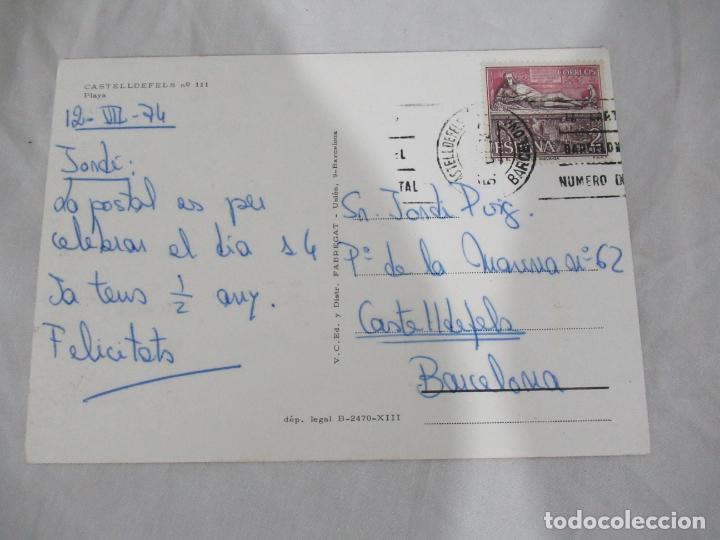 CASTELLDEFELS nº 111
Playa
12-VII-74
Jordi:
la postal es per
celebrar el dia 14
Ja tens 1/2 any.
Felicitats
V. C. Ed. y Distr. FABREGAT - Unión, 9-Barcelona
dép. legal B-2470-XIII
CORREOS
ESPAÑA 2
CASTELLDEFELS
BARCELONA
EL
TAL
BARCELON
NUMERO
Sr. Jordi Puig.
Pº de la Marina nº 62
Castelldefels
Barcelona
todocoleccion